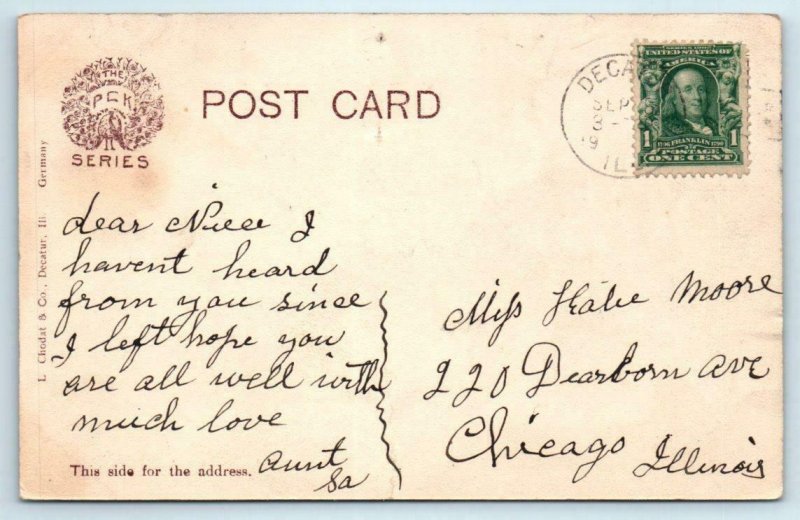 THE
PCK
SERIES
POST CARD
DECA
SEP
8
IL
SERIES 1902
UNITED STATES OF
AMERICA
1 FRANKLIN 1
POSTAGE
ONE CENT
L. Chodat & Co., Decatur, Ill. Germany
dear Niece I
havent heard
from you since
I left hope you
are all well with
much love
aunt
Sa
This side for the address.
Miss Katie Moore
220 Dearborn ave
Chicago
Illinois